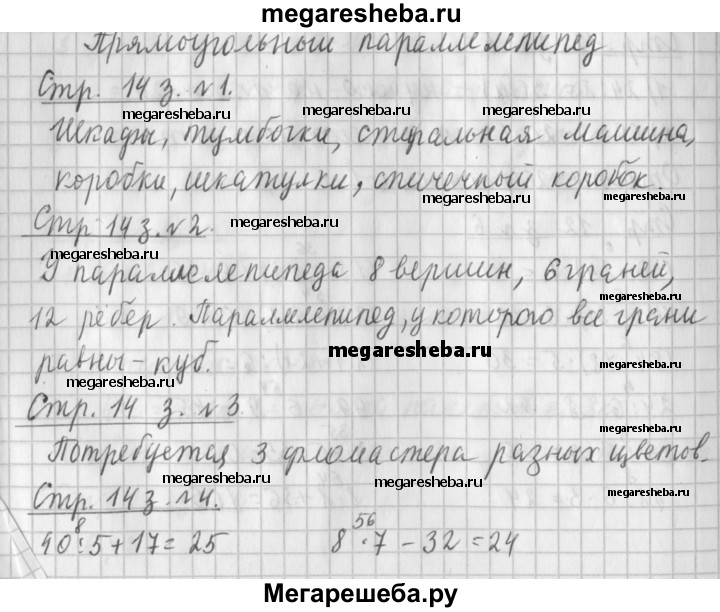 megaresheba.ru
Прямоугольный параллелепипед
Стр. 14 з. №1.
megaresheba.ru megaresheba.ru megaresheba.ru
Шкафы, тумбочки, стиральная машина,
коробки, шкатулки, спичечный коробок.
megaresheba.ru megaresheba.ru
Стр 14 з. №2.
megaresheba.ru
У параллелепипеда 8 вершин, 6 граней,
megaresheba.ru
12 рёбер. Параллепипед, у которого все грани
megaresheba.ru
равны - куб.
megaresheba.ru
Стр. 14 з. №3.
megaresheba.ru
Потребуется 3 фломастера разных цветов.
megaresheba.ru megaresheba.ru
Стр. 14 з. №4.
megaresheba.ru
8 56
40:5+17=25 8·7-32=24
Мегарешеба.ру